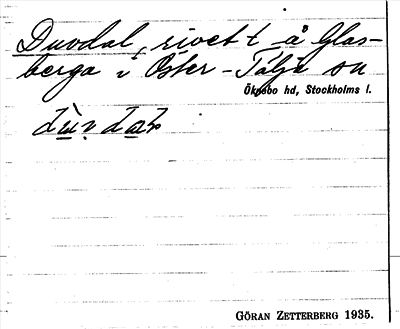 Duvdal, rivet t. å Glas-
berga i Öster-Tälje sn
Öknebo hd, Stockholms l.
GÖRAN ZETTERBERG 1935.